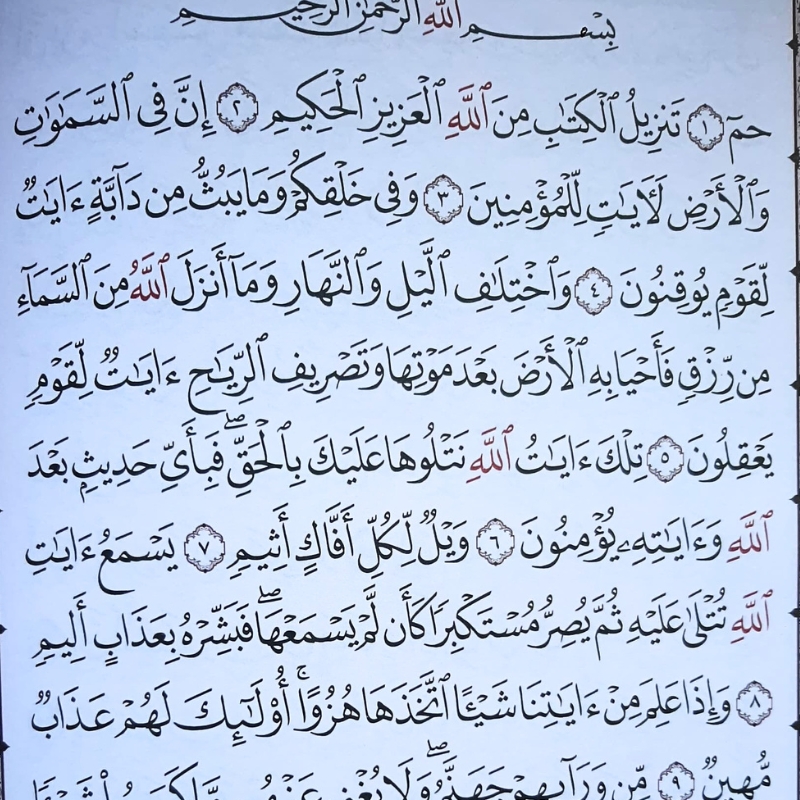 بِسْمِ ٱللَّهِ ٱلرَّحْمَٰنِ ٱلرَّحِيمِ
حمٓ ١ تَنزِيلُ ٱلْكِتَٰبِ مِنَ ٱللَّهِ ٱلْعَزِيزِ ٱلْحَكِيمِ ٢ إِنَّ فِى ٱلسَّمَٰوَٰتِ
وَٱلْأَرْضِ لَءَايَٰتٍ لِّلْمُؤْمِنِينَ ٣ وَفِى خَلْقِكُمْ وَمَا يَبُثُّ مِن دَآبَّةٍ ءَايَٰتٌ
لِّقَوْمٍ يُوقِنُونَ ٤ وَٱخْتِلَٰفِ ٱلَّيْلِ وَٱلنَّهَارِ وَمَآ أَنزَلَ ٱللَّهُ مِنَ ٱلسَّمَآءِ
مِن رِّزْقٍ فَأَحْيَا بِهِ ٱلْأَرْضَ بَعْدَ مَوْتِهَا وَتَصْرِيفِ ٱلرِّيَٰحِ ءَايَٰتٌ لِّقَوْمٍ
يَعْقِلُونَ ٥ تِلْكَ ءَايَٰتُ ٱللَّهِ نَتْلُوهَا عَلَيْكَ بِٱلْحَقِّ ۖ فَبِأَىِّ حَدِيثٍۭ بَعْدَ
ٱللَّهِ وَءَايَٰتِهِۦ يُؤْمِنُونَ ٦ وَيْلٌ لِّكُلِّ أَفَّاكٍ أَثِيمٍ ٧ يَسْمَعُ ءَايَٰتِ
ٱللَّهِ تُتْلَىٰ عَلَيْهِ ثُمَّ يُصِرُّ مُسْتَكْبِرًا كَأَن لَّمْ يَسْمَعْهَا ۖ فَبَشِّرْهُ بِعَذَابٍ أَلِيمٍ
٨ وَإِذَا عَلِمَ مِنْ ءَايَٰتِنَا شَيْـًٔا ٱتَّخَذَهَا هُزُوًا ۚ أُو۟لَٰٓئِكَ لَهُمْ عَذَابٌ
مُّهِينٌ ٩ مِّن وَرَآئِهِمْ جَهَنَّمُ ۖ وَلَا يُغْنِى عَنْهُم